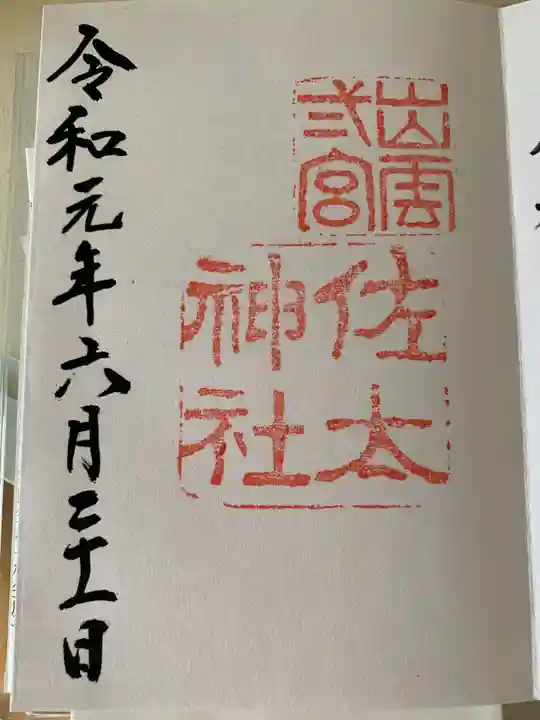 出雲
弐宮
佐太
神社
令和元年六月二十一日